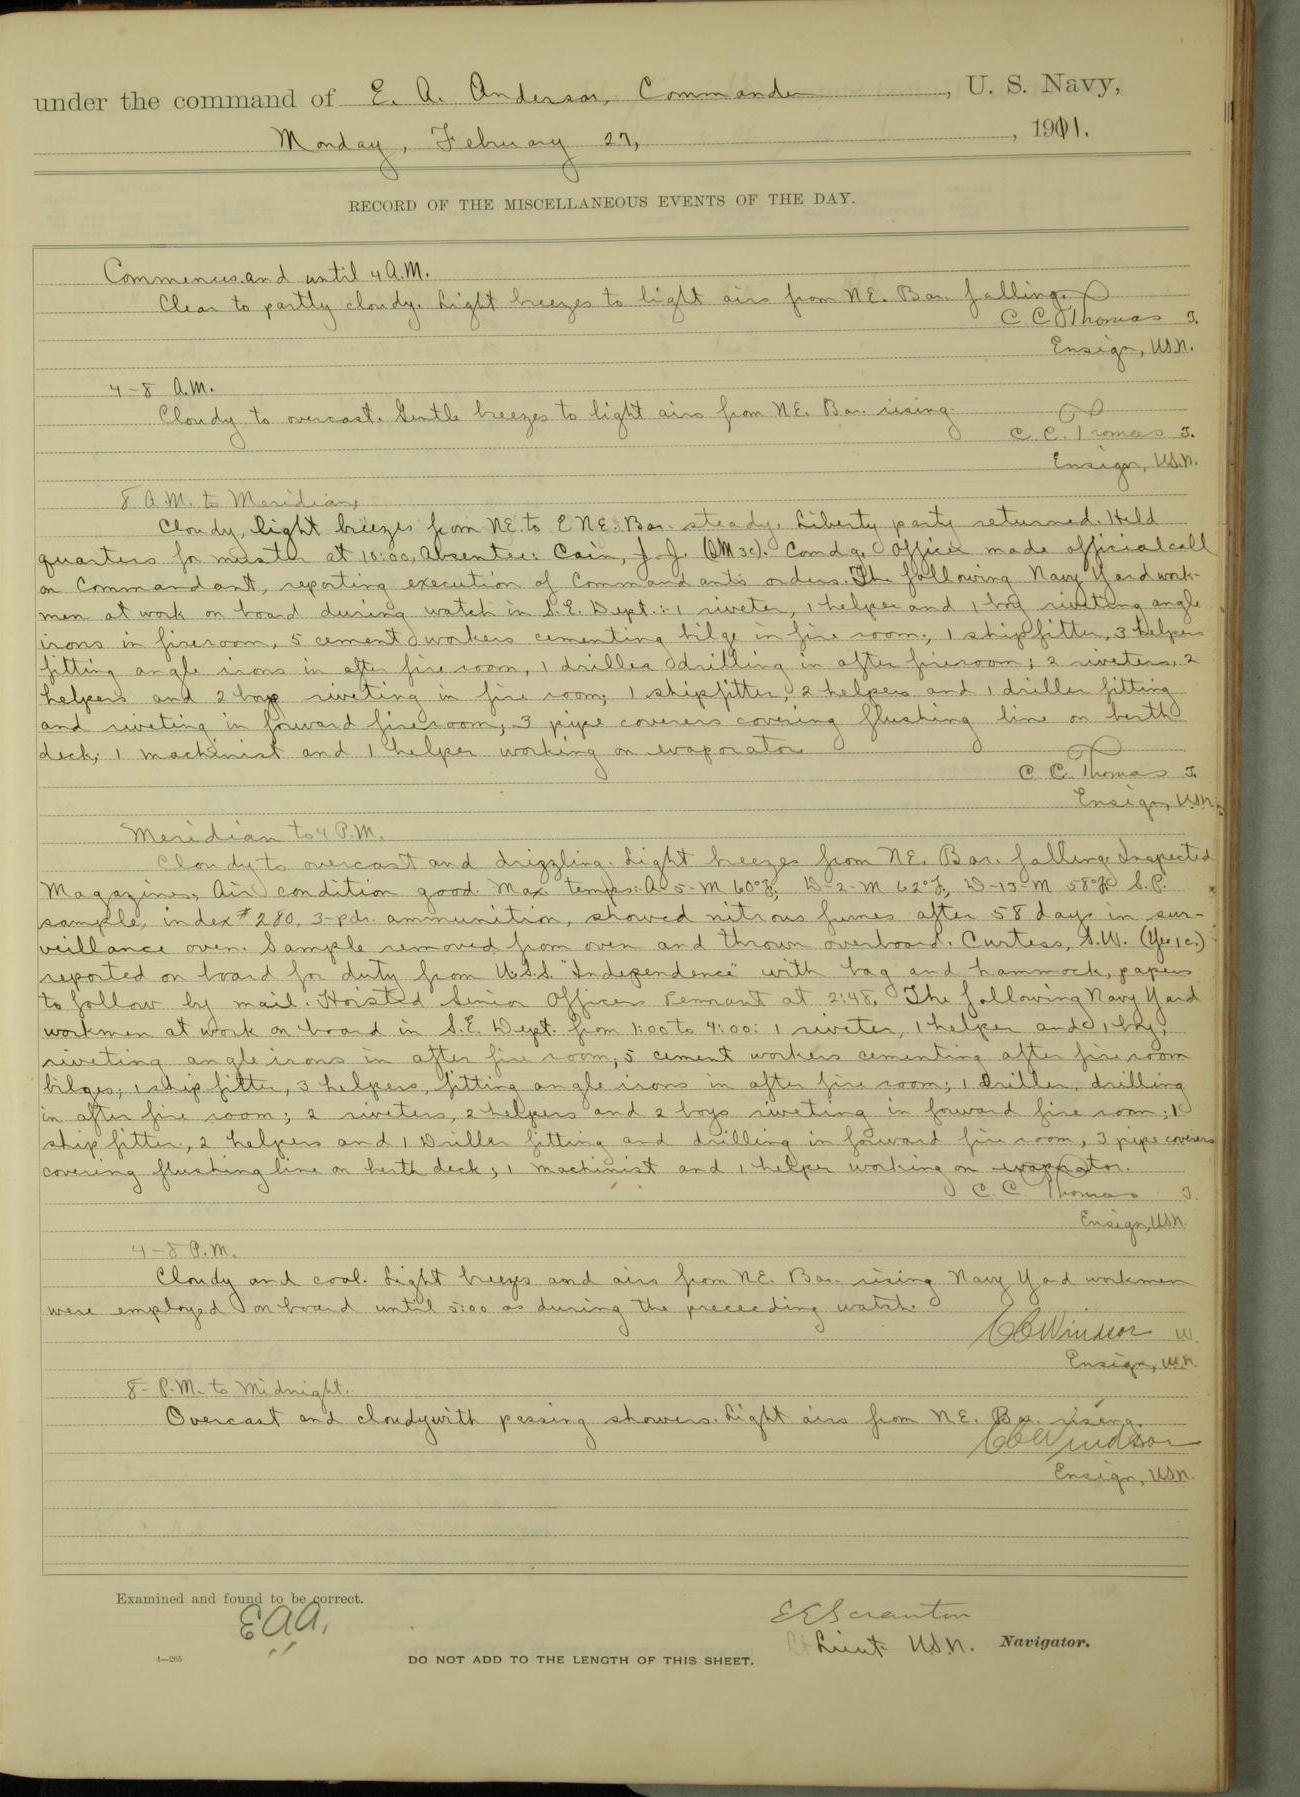 under the command of E. A. Anderson, Commander, U. S. Navy,
Monday, February 27, 1911.
RECORD OF THE MISCELLANEOUS EVENTS OF THE DAY.
Commences and until 4 A.M.
Clear to partly cloudy. Light breezes to light airs from NE. Bar. falling.
C C Thomas J.
Ensign, USN.
4-8 A.M.
Cloudy to overcast. Gentle breezes to light airs from NE. Bar. rising.
C. C. Thomas J.
Ensign, U.S.N.
8 A.M. to Meridian,
Cloudy, light breezes from NE. to ENE. Bar. steady. Liberty party returned. Held
quarters for muster at 10:00, Absentee: Cain, J. J. (QM 3c). Comdg. Officer made official call
on Commandant, reporting execution of Commandant's orders. The following Navy Yard work-
men at work on board during watch in S.E. Dept.: 1 riveter, 1 helper and 1 boy riveting angle
irons in fireroom, 5 cement workers cementing bilge in fire room; 1 shipfitter, 3 helpers
fitting angle irons in after fire room, 1 driller drilling in after fireroom; 2 riveters, 2
helpers and 2 boys riveting in fire room; 1 shipfitter, 2 helpers and 1 driller fitting
and riveting in forward fireroom; 3 pipe coverers covering flushing line on berth
deck; 1 machinist and 1 helper working on evaporator
C C. Thomas J.
Ensign, U.S.N.
Meridian to 4 P.M.
Cloudy to overcast and drizzling. Light breezes from NE. Bar. falling. Inspected
Magazines, Air condition good. Max temps: A-5-M 60°F; D-2-M 62°F, D-13-M 58°F. S.P.
sample, index #280, 3-pdr. ammunition, showed nitrous fumes after 58 days in sur-
veillance oven. Sample removed from oven and thrown overboard. Curtess, S.W. (Yeo 1c.)
reported on board for duty from U.S.S. "Independence" with bag and hammock, papers
to follow by mail. Hoisted Senior Officers Pennant at 2:48. The following Navy Yard
workmen at work on board in S.E. Dept. from 1:00 to 4:00: 1 riveter, 1 helper and 1 boy,
riveting angle irons in after fire room; 5 cement workers cementing after fire room
bilges; 1 ship fitter, 3 helpers, fitting angle irons in after fire room; 1 driller, drilling
in after fire room; 2 riveters, 2 helpers and 2 boys riveting in forward fire room; 1
ship fitter, 2 helpers and 1 Driller fitting and drilling in forward fire room, 3 pipe coverers
covering flushing line on berth deck; 1 machinist and 1 helper working on evaporator.
C. C. Thomas J.
Ensign, USN.
4-8 P.M.
Cloudy and cool. Light breezes and airs from NE. Bar. rising Navy Yard workmen
were employed on board until 5:00 as during the preceeding watch.
CCWindsor W.
Ensign, U.S.N.
8- P.M. to Midnight.
Overcast and cloudy with passing showers. Light airs from NE. Bar. rising.
CCWindsor
Ensign, USN.
Examined and found to be correct.
E.A.A.
E E Scranton
Lieut U.S.N. Navigator.
4—265
DO NOT ADD TO THE LENGTH OF THIS SHEET.